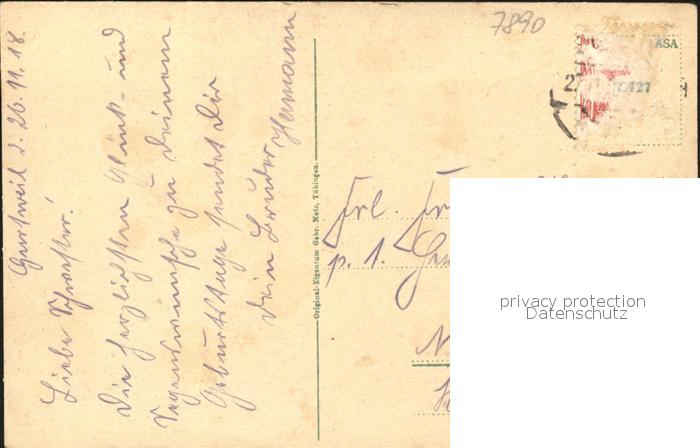 7890
Gurtweil d. 26.11.18.
Liebe Schwester!
Die herzlichsten Glück- und
Segenswünsche zu Deinem
Geburtstage sendet Dir
Dein Bruder Hermann
Original-Eigentum Gebr. Metz, Tübingen.
Frl.
p. 1.
privacy protection
Datenschutz